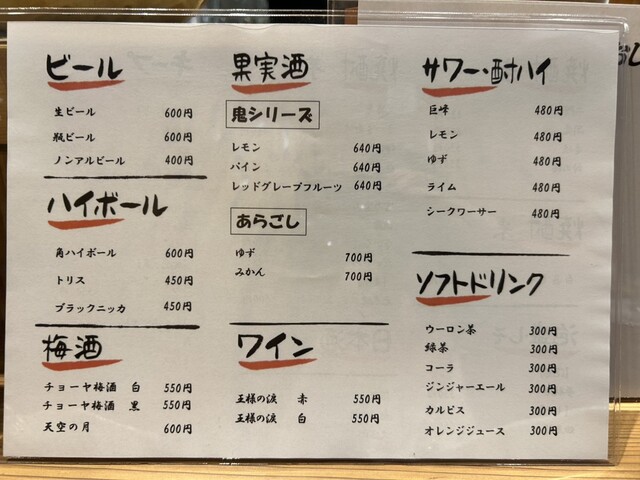 ビール
生ビール 600円
瓶ビール 600円
ノンアルビール 400円
ハイボール
角ハイボール 600円
トリス 450円
ブラックニッカ 450円
梅酒
チョーヤ梅酒 白 550円
チョーヤ梅酒 黒 550円
天空の月 600円
果実酒
鬼シリーズ
レモン 640円
パイン 640円
レッドグレープフルーツ 640円
あらごし
ゆず 700円
みかん 700円
ワイン
王様の涙 赤 550円
王様の涙 白 550円
サワー・酎ハイ
巨峰 480円
レモン 480円
ゆず 480円
ライム 480円
シークワーサー 480円
ソフトドリンク
ウーロン茶 300円
緑茶 300円
コーラ 300円
ジンジャーエール 300円
カルピス 300円
オレンジジュース 300円